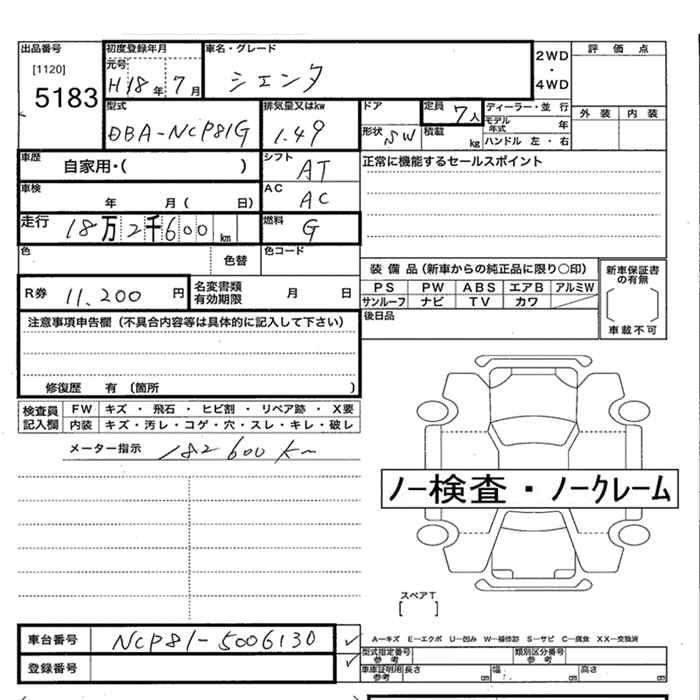 出品番号
[1120]
5183
初度登録年月
元号
H 18 年 7 月
車名・グレード
シエンタ
2WD
・
4WD
評 価 点
外 装 内 装
型式
DBA-NCP81G
排気量又はkw
1.49
ドア
形状 SW
定員 7人
積載 kg
ディーラー・並 行
モデル年式 年
ハンドル 左・右
車歴 自家用・( )
シフト AT
正常に機能するセールスポイント
車検 年 月 ( 日)
AC AC
走行 18万2千600 km
燃料 G
色 色替
色コード
装 備 品 (新車からの純正品に限り○印)
新車保証書の有無
PS PW ABS エアB アルミW
サンルーフ ナビ TV カワ
車載不可
R券 11.200 円
名変書類有効期限 月 日
後日品
注意事項申告欄(不具合内容等は具体的に記入して下さい)
修復歴 有 (箇所 )
検査員記入欄
FW キズ ・ 飛石 ・ ヒビ割 ・ リペア跡 ・ X要
内装 キズ・汚レ・コゲ・穴・スレ・キレ・破レ
メーター指示 182600km
ノー検査・ノークレーム
スペアT
[ ]
車台番号 NCP81-5006130
登録番号
A―キズ E―エクボ U―凹み W―補修跡 S―サビ C―腐食 XX―交換済
型式指定番号 参考
類別区分番号 参考
車庫証明用 参考 長さ cm 幅 cm 高さ cm